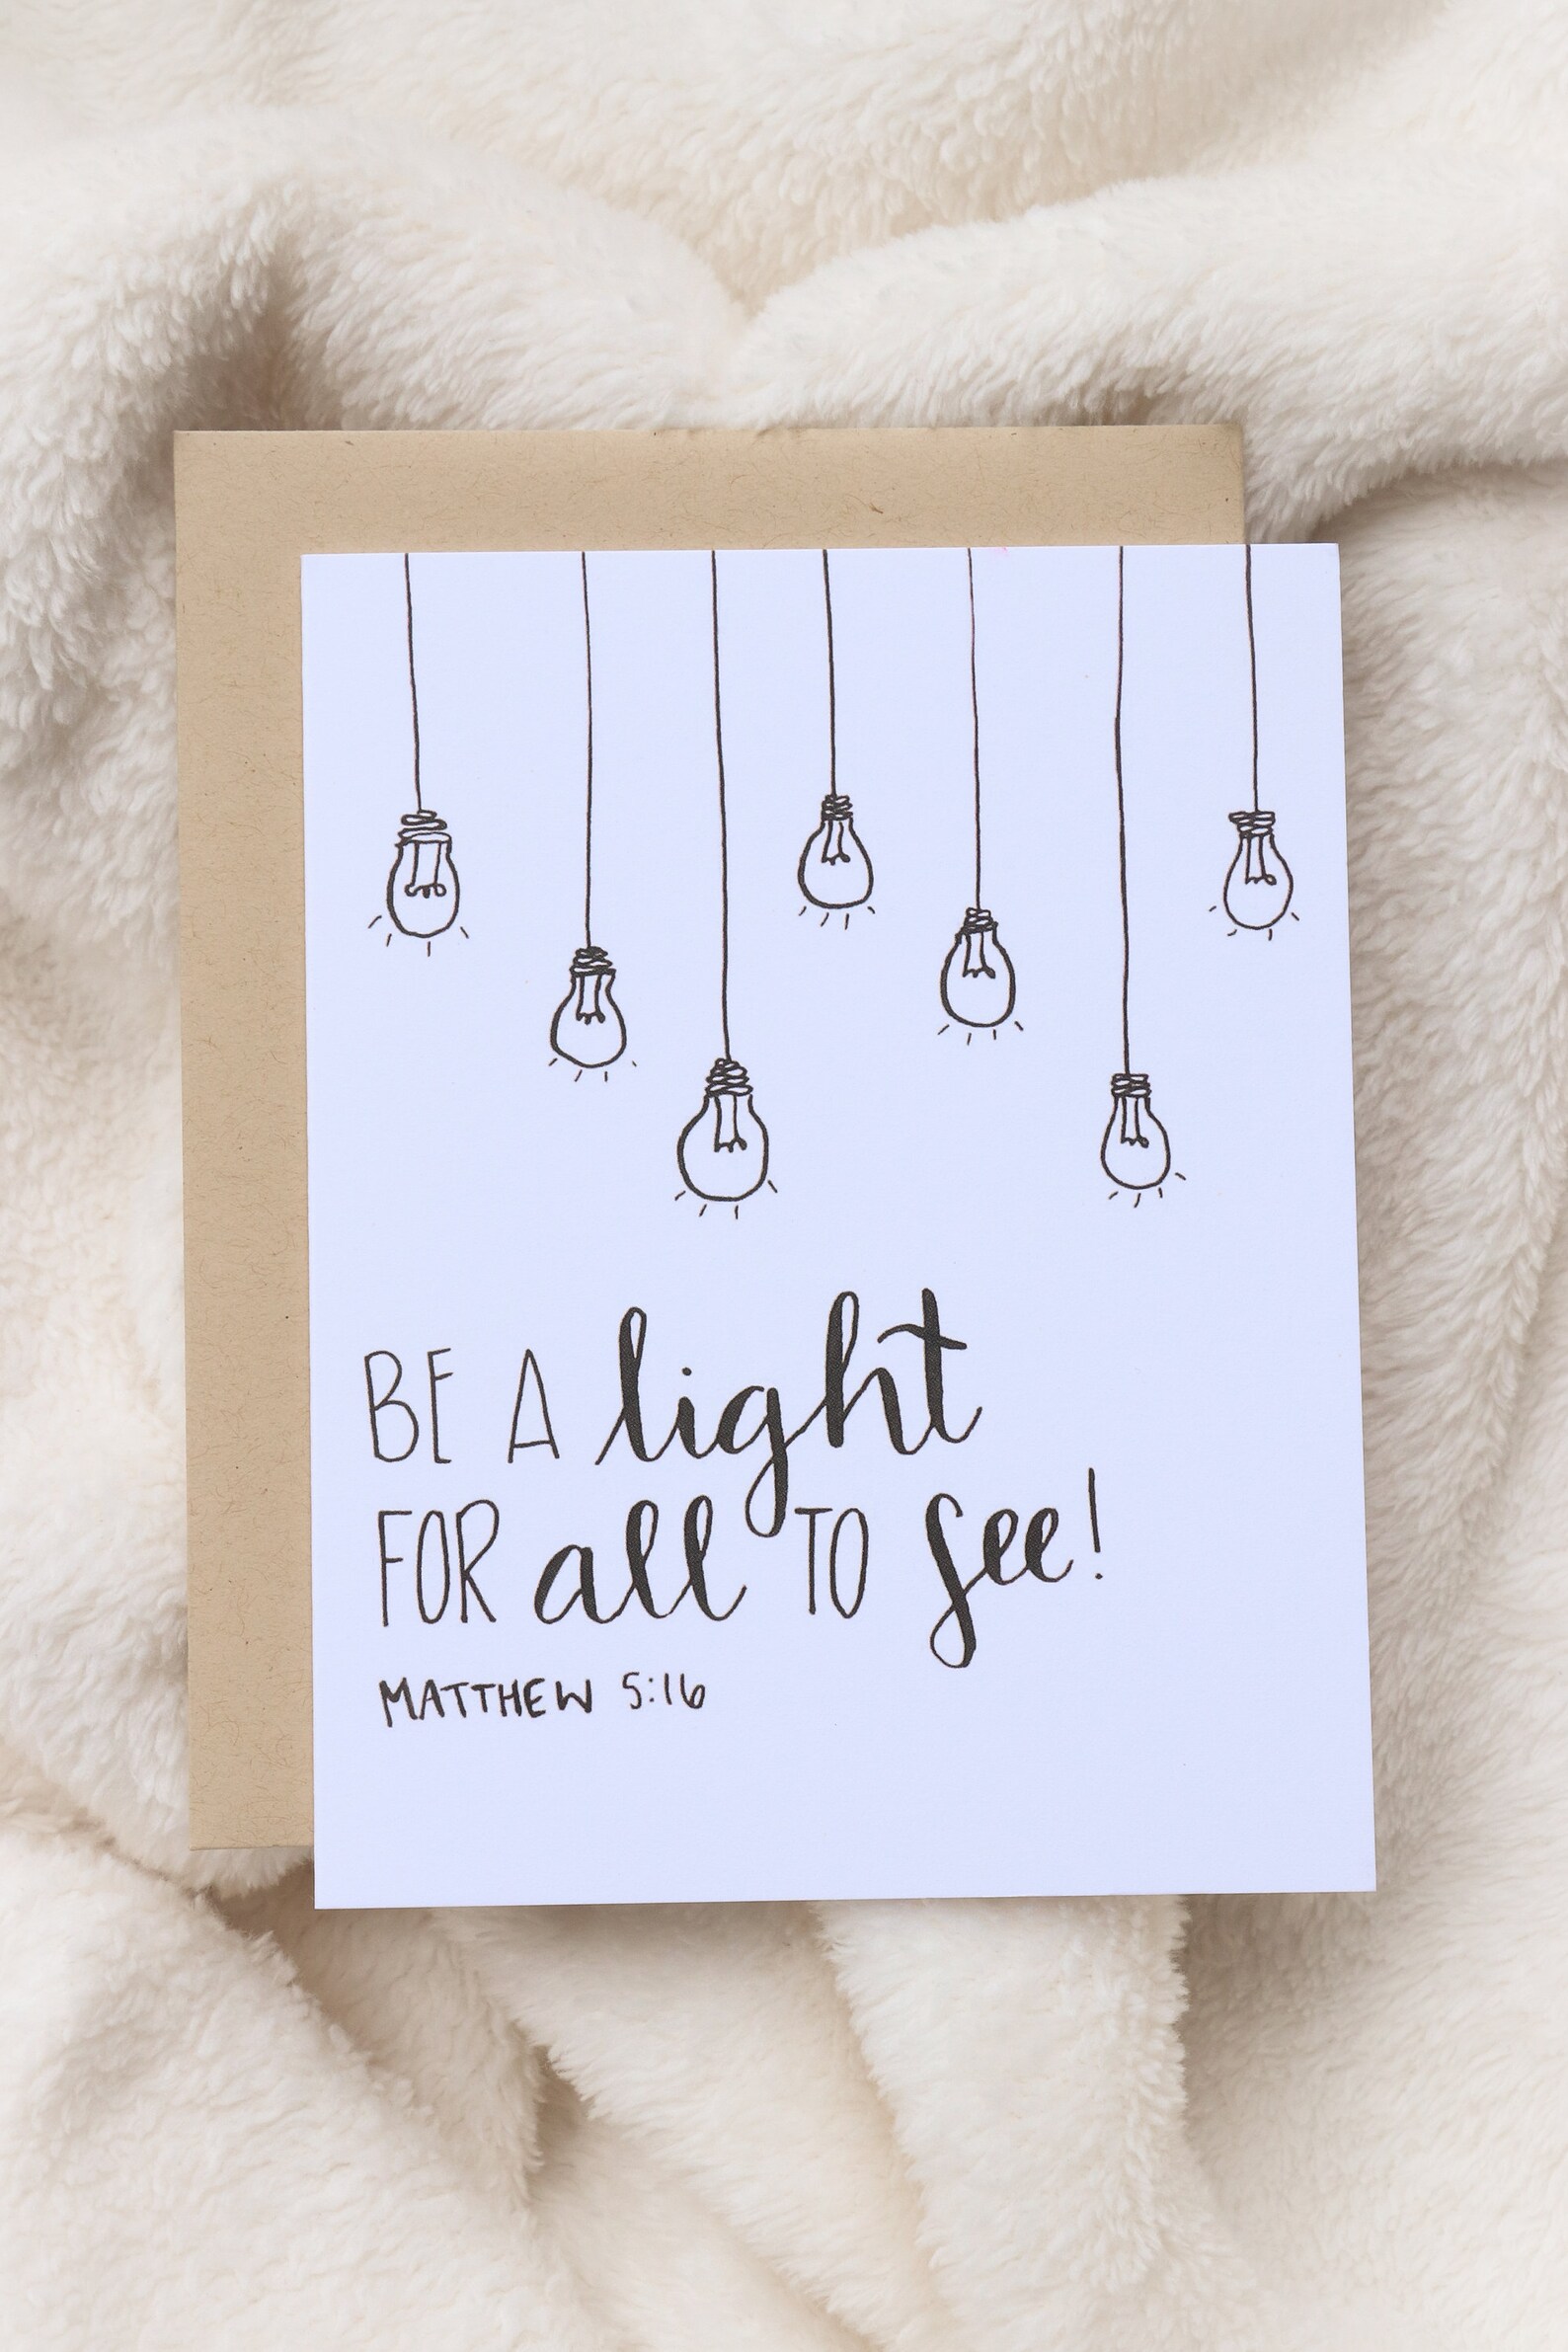 BE A light
FOR all TO see!
MATTHEW 5:16